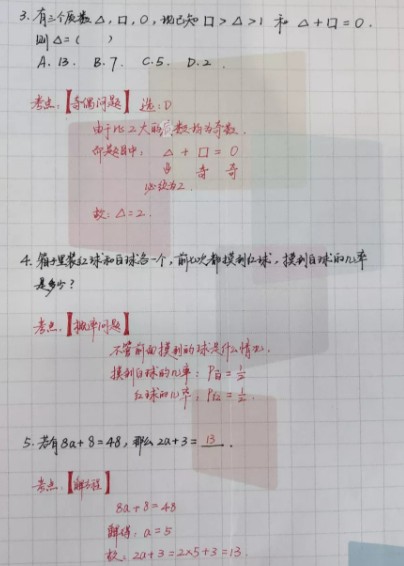 3. 有三个质数△, □, ○, 现已知 □ > △ > 1 和 △ + □ = ○.
则△ = (    )
A. 13. B. 7. C. 5. D. 2.
考点:【奇偶问题】 选: D
由于比2大的质数均为奇数.
即题目中: △ + □ = ○
奇 奇
必须为2.
故: △ = 2.
4. 箱子里装红球和白球各一个, 前七次都摸到红球, 摸到白球的几率
是多少?
考点:【概率问题】
不管前面摸到的球是什么情况,
摸到白球的几率: P白 = 1/2
红球的几率: P红 = 1/2.
5. 若有8a + 8 = 48, 那么 2a + 3 = 13 .
考点【解方程】
8a + 8 = 48
解得: a = 5
故: 2a + 3 = 2×5 + 3 = 13.